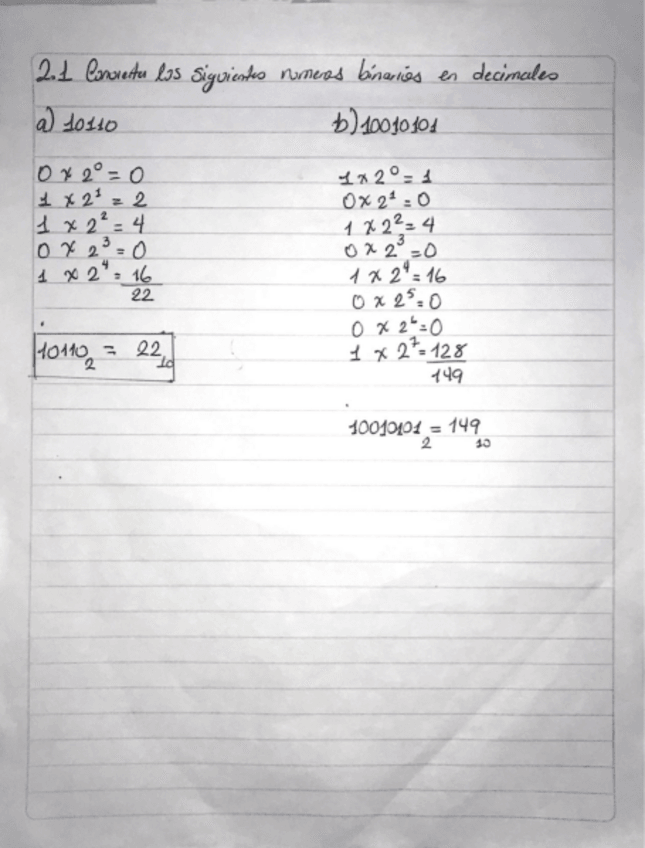 2.1 Convierta los siguientes numeros binarios en decimales
a) 10110
0 x 2⁰ = 0
1 x 2¹ = 2
1 x 2² = 4
0 x 2³ = 0
1 x 2⁴ = 16
22
10110₂ = 22₁₀
b) 10010101
1 x 2⁰ = 1
0 x 2¹ = 0
1 x 2² = 4
0 x 2³ = 0
1 x 2⁴ = 16
0 x 2⁵ = 0
0 x 2⁶ = 0
1 x 2⁷ = 128
149
10010101₂ = 149₁₀